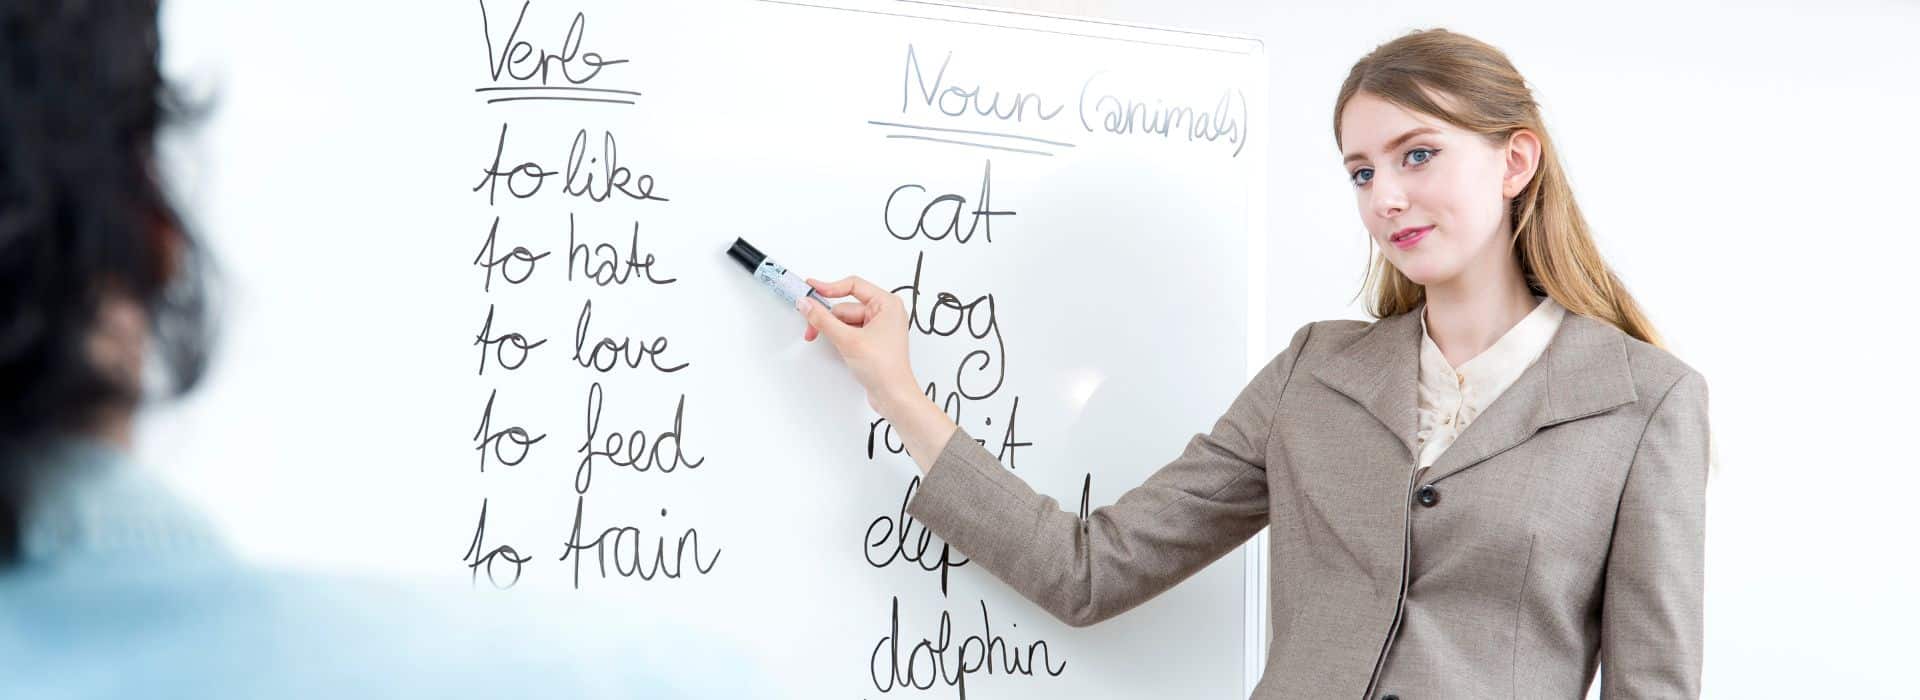 Verb
to like
to hate
to love
to feed
to train
Noun (animals)
cat
dog
dolphin